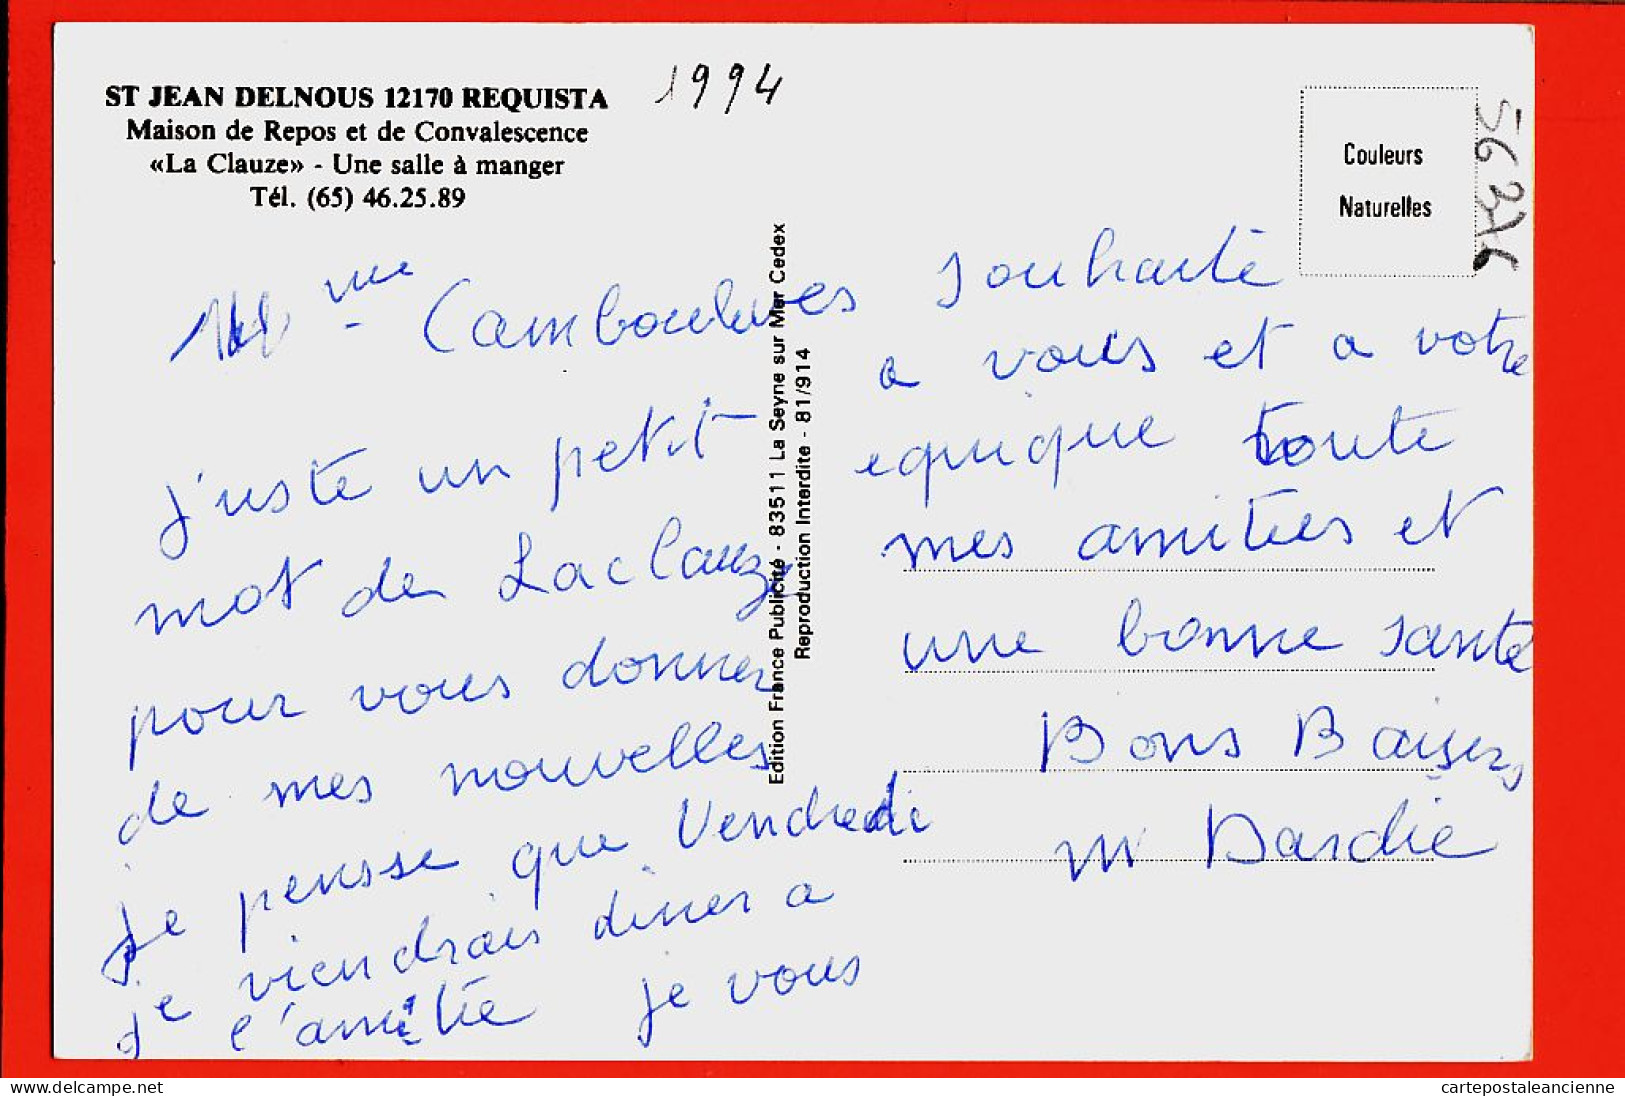 ST JEAN DELNOUS 12170 REQUISTA
Maison de Repos et de Convalescence
«La Clauze» - Une salle à manger
Tél. (65) 46.25.89
1994
Couleurs
Naturelles
Edition France Publicité - 83511 La Seyne sur Mer Cedex
Reproduction Interdite - 81/914
Mme Camboulives
j'uste un petit
mot de Laclauze
pour vous donner
de mes nouvelles
je pensse que Vendredi
je viendrais diner a
l'amitie je vous
souhaite
a vous et a votre
equique toute
mes amities et
une bonne sante
Bons Baisers
m Dardie
cartepostaleancienne